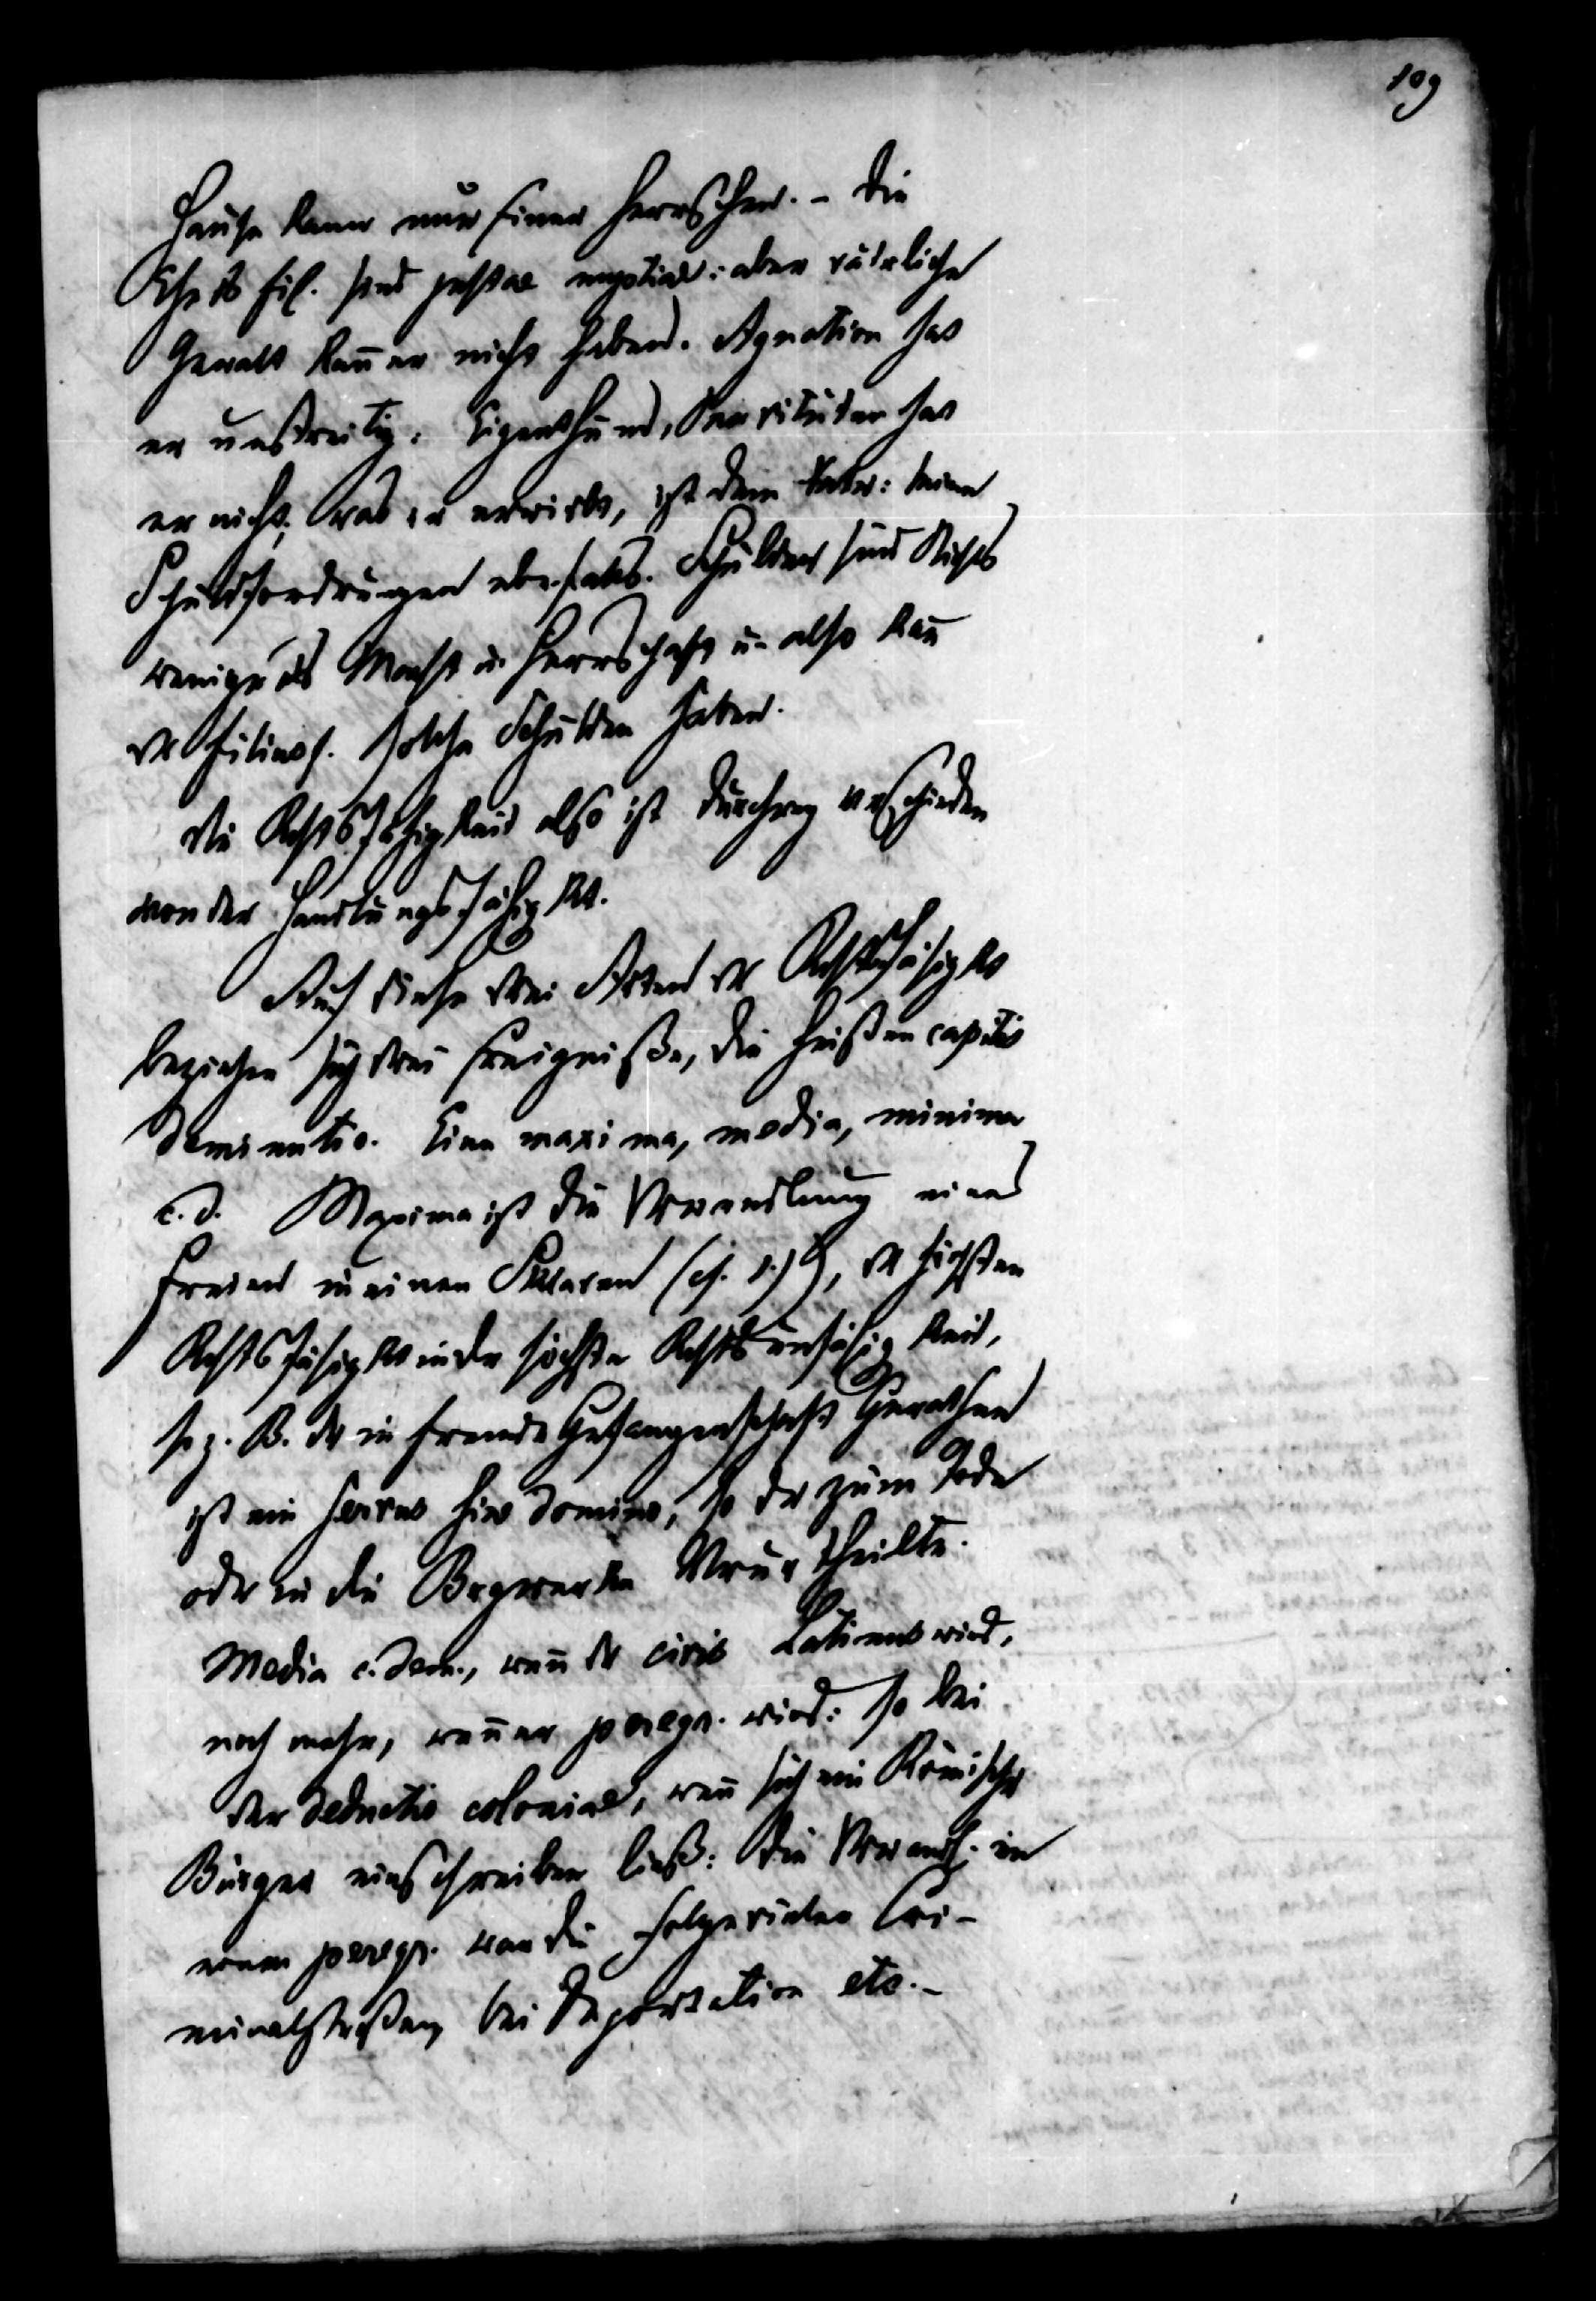 109
Hause kann nur Einer herrschen. - Die
Ehe ds fil. sind justae nuptiae: aber väterliche
Gewalt kan̄ er nicht haben. Agnation hat
er unstreitig: Eigenthum, Servituten hat
er nicht, was er erwirbt, ist dem Vater: keine
Schuldfordrungen ebenfalls. Schulden sind Nichts
weniger als Macht u. Herrschaft u. also kan̄
der filiusf. solche Schulden haben.
Die Rechtsfähigkeit also ist durchweg verschieden
von der Handlungsfähigkt.
Auf diese drei Arten der Rechtsfähigkt
beziehen sich drei Ereigniße, die heißen capitis
deminutio. Eine maxima, media, minima
c. d. Maxima ist die Verwandlung eines
Freien in einen Sklaven (cf. 1.)), der höchsten
Rechtsfähigkt in der höchste Rechtsunfähigkeit,
so z. B. der in fremde Gefangenschaft Gerathen
ist ein servus sine domino, so der zum Tode
oder in die Bergwerke Verurtheilte.
Media c. dem., wen̄ der civis Latinus wird,
noch mehr, wen̄ er peregr. wird: so bei
der deductio coloniae, wen̄ sich ein Römischer
Bürger einschreiben ließ: die Verwandl. in
einen peregr. war die Folge vieler Cri-
minalstrafen, bei Deportation etc. -